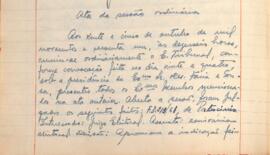 Ata da sessão ordinária
Aos vinte e cinco de outubro de mil
novecentos e sessenta e um, às dezesseis horas,
reuniu-se ordinariamente o E. Tribunal, con-
forme convocação feita no dia vinte e quatro,
sob a presidência do Exmo. Sr. Des. Faria e
presentes todos os Exmos. membros
na ata anterior. Aberta a sessão, foram jul-
gados os seguintes feitos:
Interessado: Juízo Eleitoral. Assunto:
eleitoral. Decisão: Aprovaram a indicação